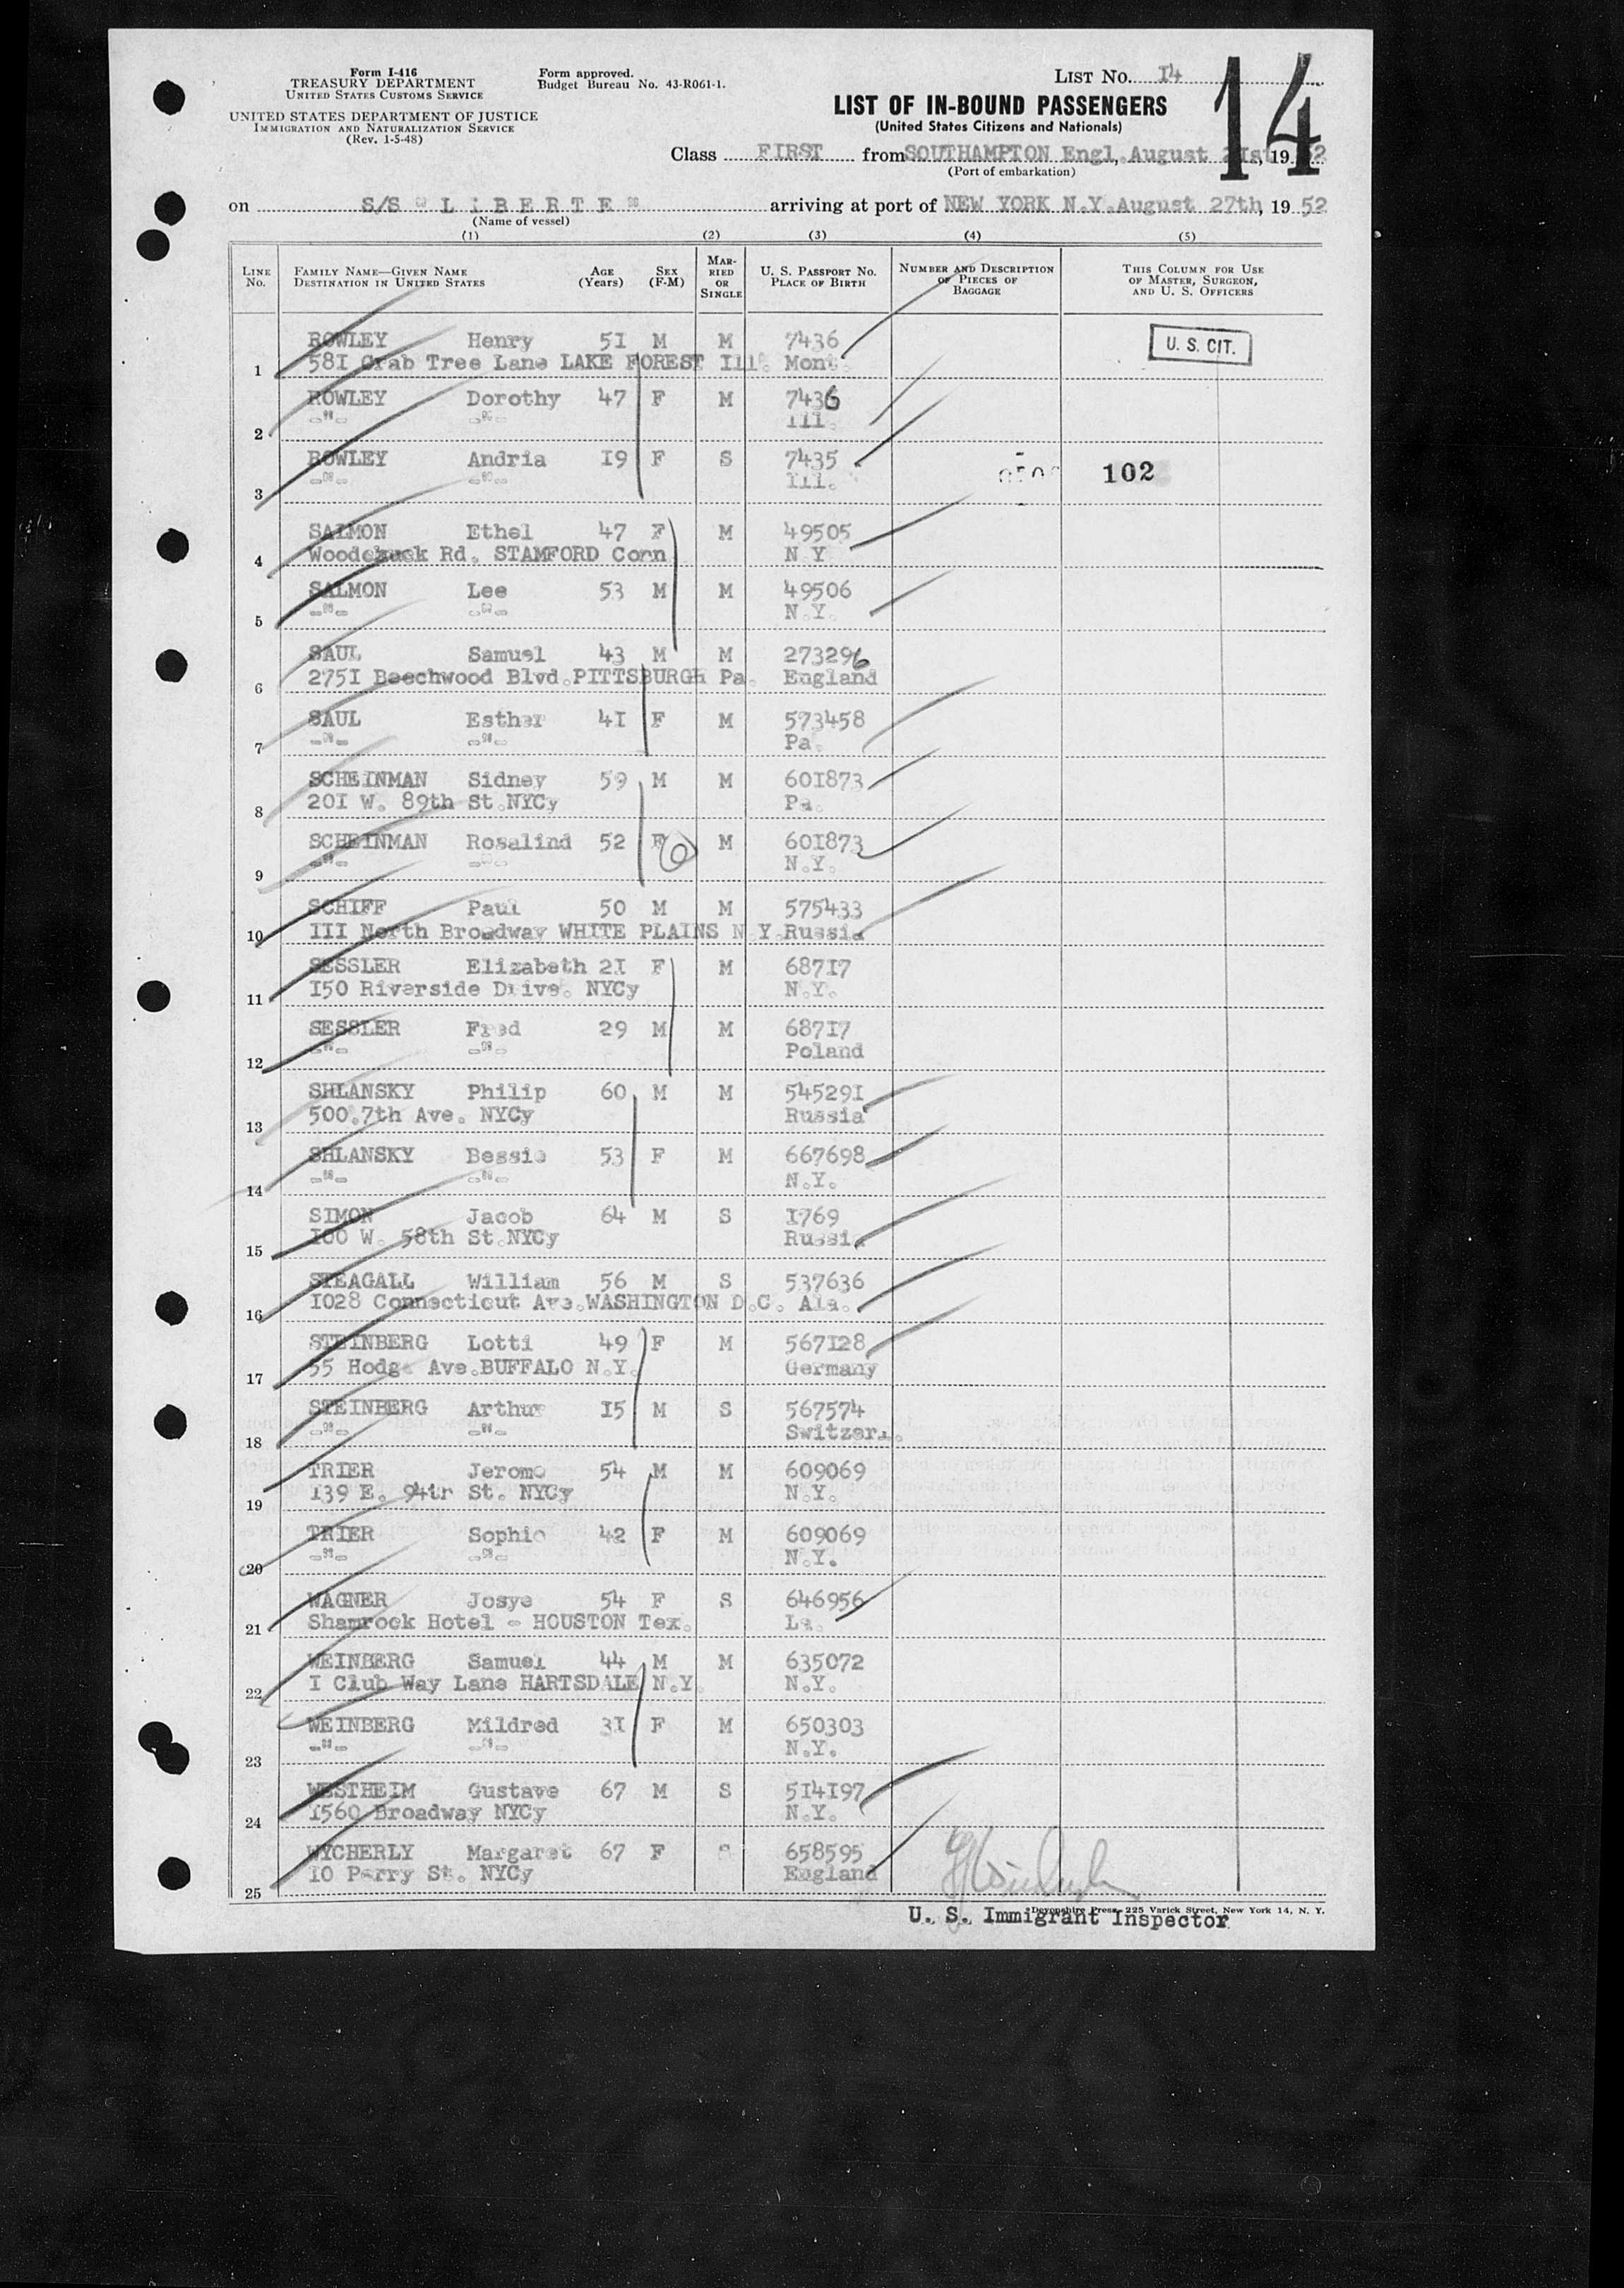 Form I-416
TREASURY DEPARTMENT
UNITED STATES CUSTOMS SERVICE
UNITED STATES DEPARTMENT OF JUSTICE
IMMIGRATION AND NATURALIZATION SERVICE
(Rev. 1-5-48)
Form approved.
Budget Bureau No. 43-R061-1.
LIST NO. I4
14
LIST OF IN-BOUND PASSENGERS
(United States Citizens and Nationals)
Class FIRST from SOUTHAMPTON Engl. August 2Ist, 1952
(Port of embarkation)
on S/S "LIBERTE" arriving at port of NEW YORK N.Y. August 27th, 19 52
(Name of vessel)
(1) (2) (3) (4) (5)
LINE No. FAMILY NAME—GIVEN NAME DESTINATION IN UNITED STATES AGE (Years) SEX (F-M) MARRIED OR SINGLE U. S. PASSPORT NO. PLACE OF BIRTH NUMBER AND DESCRIPTION OF PIECES OF BAGGAGE THIS COLUMN FOR USE OF MASTER, SURGEON, AND U. S. OFFICERS
ROWLEY Henry 5I M M 7436 U. S. CIT.
1 58I Crab Tree Lane LAKE FOREST Ill. Mont.
ROWLEY Dorothy 47 F M 7436
2 -"- -"- Ill.
ROWLEY Andria I9 F S 7435 102
3 -"- -"- Ill.
SALMON Ethel 47 F M 49505
4 Woodchuck Rd. STAMFORD Conn N Y
SALMON Lee 53 M M 49506
5 -"- -"- N.Y.
SAUL Samuel 43 M M 273296
6 275I Beechwood Blvd.PITTSBURGH Pa. England
SAUL Esther 4I F M 573458
7 -"- -"- Pa.
SCHEINMAN Sidney 59 M M 60I873
8 20I W. 89th St.NYCy Pa.
SCHEINMAN Rosalind 52 F 6 M 60I873
9 -"- -"- N.Y.
SCHIFF Paul 50 M M 575433
10 III North Broadway WHITE PLAINS N Y. Russia
SESSLER Elizabeth 2I F M 687I7
11 I50 Riverside Drive. NYCy N.Y.
SESSLER Fred 29 M M 687I7
12 -"- -"- Poland
SHLANSKY Philip 60 M M 54529I
13 500.7th Ave. NYCy Russia
SHLANSKY Bessie 53 F M 667698
14 -"- -"- N.Y.
SIMON Jacob 64 M S I769
15 I00 W. 58th St.NYCy Russia
STEAGALL William 56 M S 537636
16 I028 Connecticut Ave.WASHINGTON D.C. Ala.
STEINBERG Lotti 49 F M 567I28
17 55 Hodge Ave.BUFFALO N.Y. Germany
STEINBERG Arthur I5 M S 567574
18 -"- -"- Switzer..
TRIER Jerome 54 M M 609069
19 I39 E. 94th St. NYCy N.Y.
TRIER Sophie 42 F M 609069
20 -"- -"- N.Y.
WAGNER Josye 54 F S 646956
21 Shamrock Hotel - HOUSTON Tex. La.
WEINBERG Samuel 44 M M 635072
22 I Club Way Lane HARTSDALE N.Y. N.Y.
WEINBERG Mildred 3I F M 650303
23 -"- -"- N.Y.
WESTHEIM Gustave 67 M S 5I4I97
24 I560 Broadway NYCy N.Y.
WYCHERLY Margaret 67 F S 658595
25 I0 Perry St. NYCy England
Devonshire Press, 225 Varick Street, New York 14, N. Y.
U. S. Immigrant Inspector